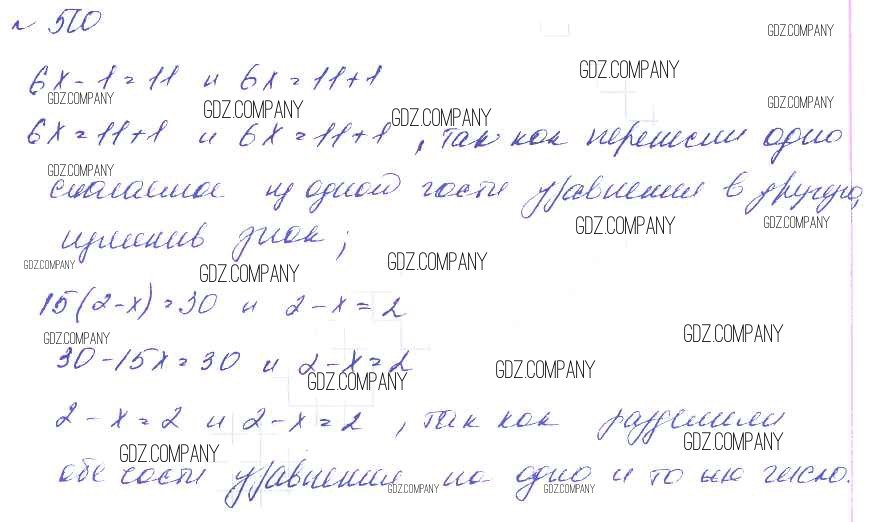 № 510
GDZ.COMPANY
6x - 1 = 11 и 6x = 11+1
GDZ.COMPANY
GDZ.COMPANY GDZ.COMPANY
GDZ.COMPANY GDZ.COMPANY
6x = 11+1 и 6x = 11+1, так как перенесли одно
GDZ.COMPANY
слагаемое из одной части уравнения в другую,
GDZ.COMPANY GDZ.COMPANY
изменив знак;
GDZ.COMPANY GDZ.COMPANY GDZ.COMPANY
15(2-x) = 30 и 2-x = 2
GDZ.COMPANY GDZ.COMPANY
30-15x = 30 и 2-x = 2
GDZ.COMPANY GDZ.COMPANY
2-x = 2 и 2-x = 2, так как разделили
GDZ.COMPANY GDZ.COMPANY
обе части уравнения на одно и то же число.
GDZ.COMPANY GDZ.COMPANY